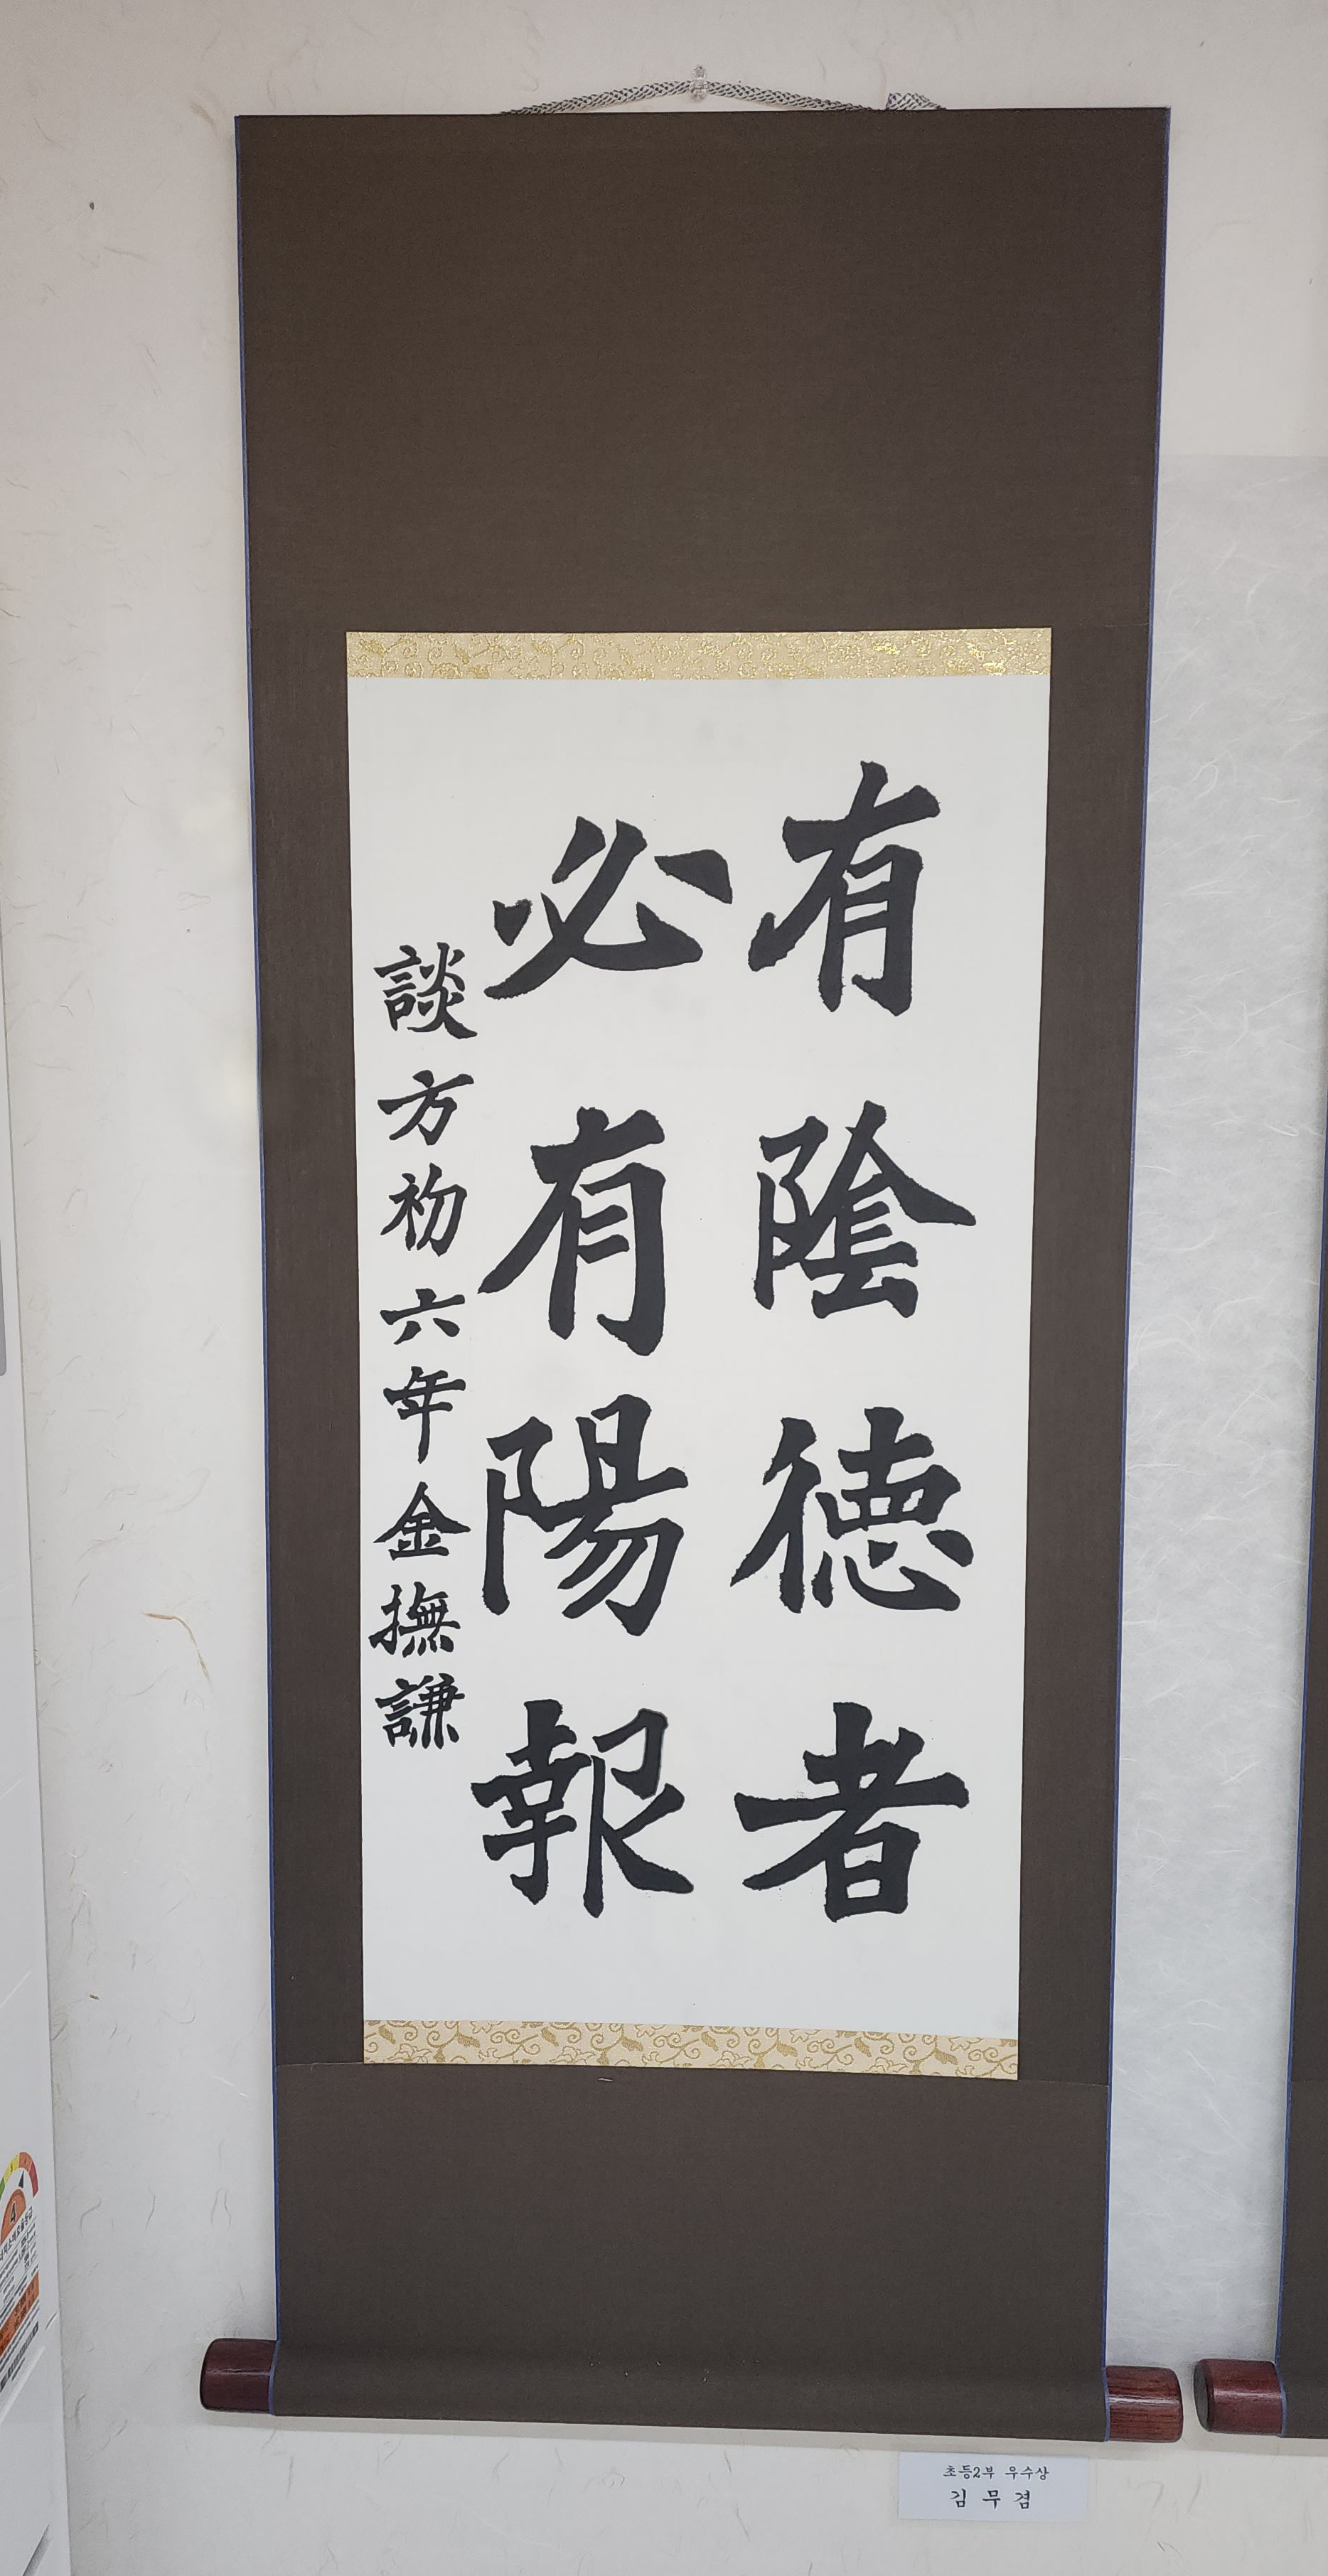 有陰德者
必有陽報
談方初六年金撫謙
초등2부 우수상
김무겸